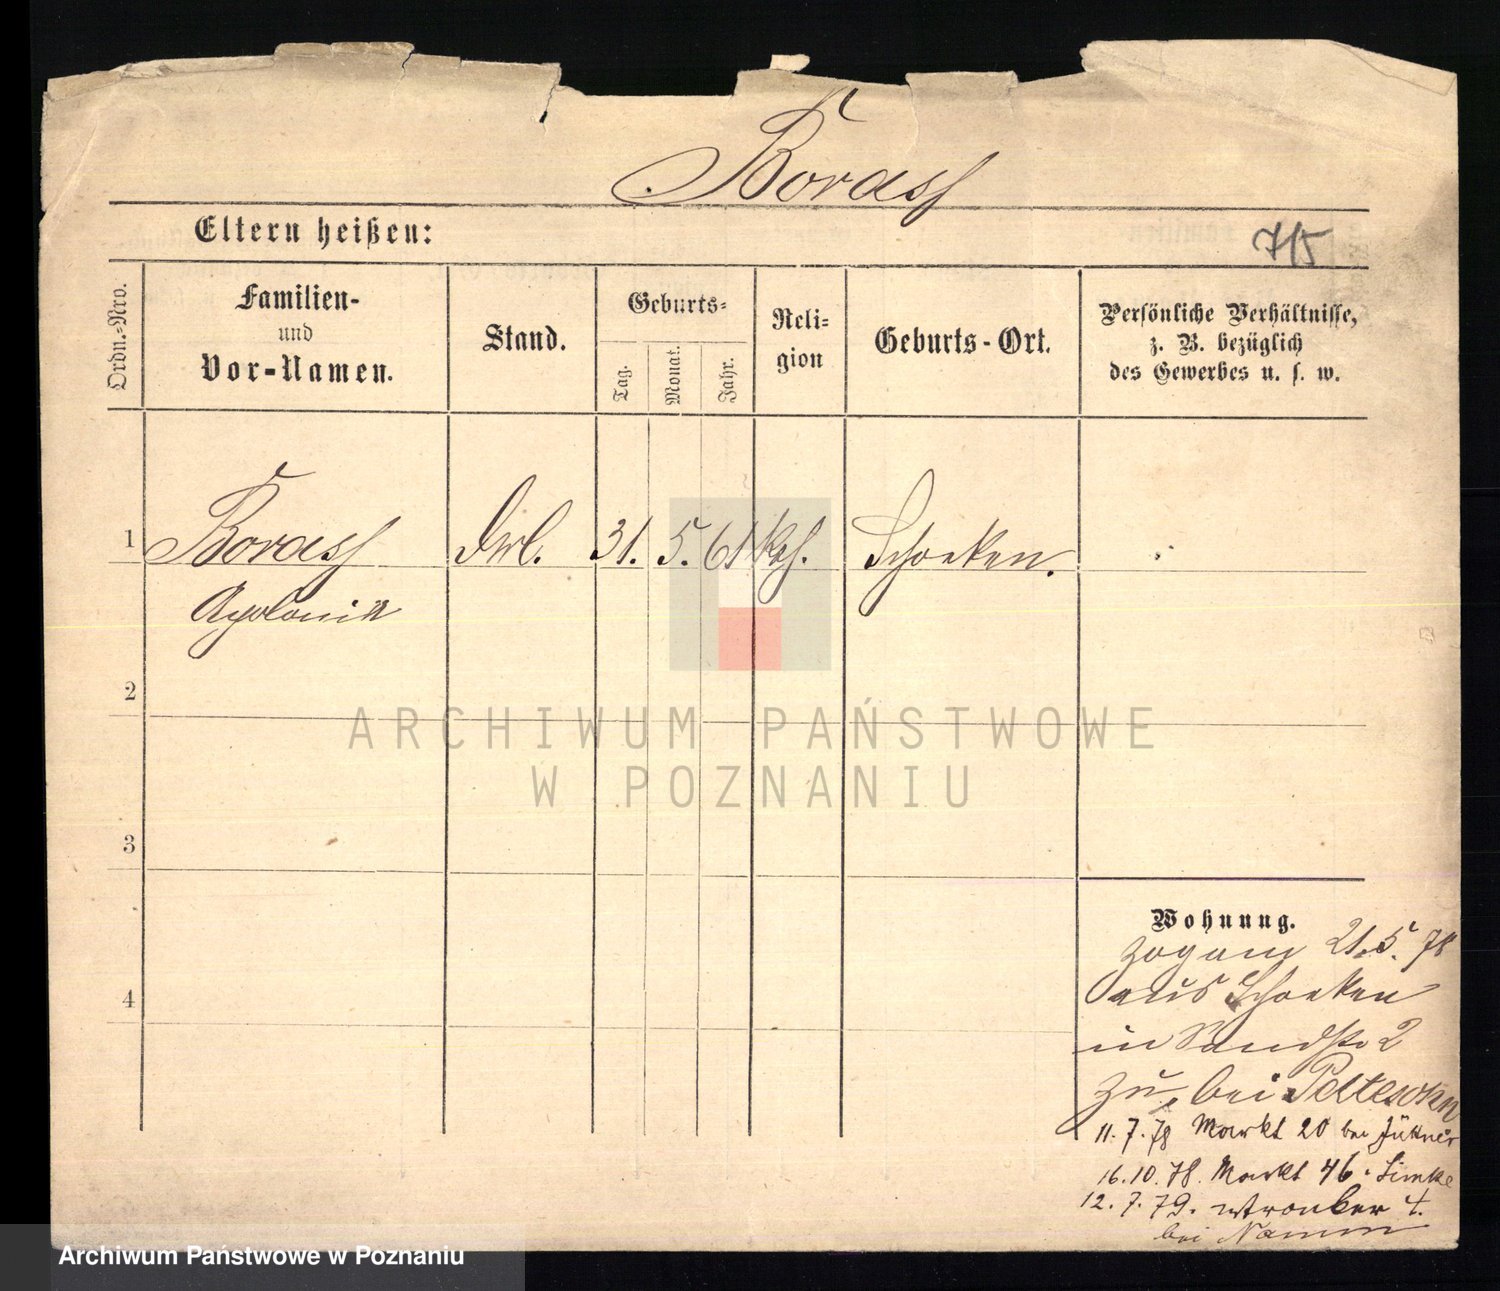 Borass
Eltern heißen:
715
Ordn.-Nro.
Familien-
und
Vor-Namen.
Stand.
Geburts-
Tag.
Monat.
Jahr.
Reli-
gion
Geburts-Ort.
Persönliche Verhältnisse,
z. B. bezüglich
des Gewerbes u. s. w.
1 Borass 31. 5. 61 Schocken.
Apolonia
2
3
4
Wohnung.
zog am 21.5.78
aus Schocken
in Sandstr 2
zu, bei Peltesohn
11.7.78 Markt 20 bei
16.10.78. Markt 46.
12.7.79. Wronker 4.
bei
ARCHIWUM PAŃSTWOWE
W POZNANIU
Archiwum Państwowe w Poznaniu